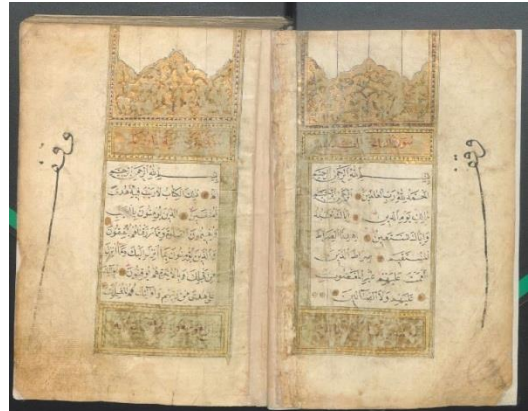 وقف
بسم الله الرحمن الرحيم
الحمد لله رب العالمين الرحمن الرحيم
مالك يوم الدين اياك نعبد
واياك نستعين اهدنا الصراط
المستقيم صراط الذين
انعمت عليهم غير المغضوب
عليهم ولا الضالين
بسم الله الرحمن الرحيم
الم ذلك الكتاب لا ريب فيه هدى
للمتقين الذين يؤمنون بالغيب
ويقيمون الصلوة ومما رزقناهم ينفقون
والذين يؤمنون بما انزل اليك وما انزل
من قبلك وبالاخرة هم يوقنون اولئك
على هدى من ربهم واولئك هم المفلحون
وقف